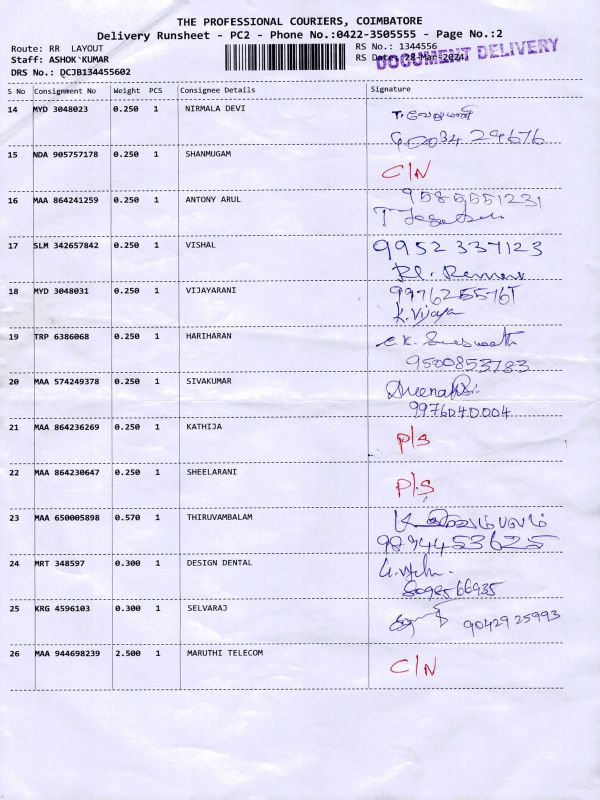 THE PROFESSIONAL COURIERS, COIMBATORE
Delivery Runsheet - PC2 - Phone No.:0422-3505555 - Page No.:2
Route: RR LAYOUT
Staff: ASHOK KUMAR
DRS No.: DCJB134455602
RS No.: 1344556
RS Date: 28-Mar-2024
DOCUMENT DELIVERY
S No Consignment No Weight PCS Consignee Details Signature
14 MYD 3048023 0.250 1 NIRMALA DEVI
15 NDA 905757178 0.250 1 SHANMUGAM C/N
16 MAA 864241259 0.250 1 ANTONY ARUL 9585551231
17 SLM 342657842 0.250 1 VISHAL 9952337123
18 MYD 3048031 0.250 1 VIJAYARANI
K.Vijaya
19 TRP 6386068 0.250 1 HARIHARAN
9500853783
20 MAA 574249378 0.250 1 SIVAKUMAR
9976040004
21 MAA 864236269 0.250 1 KATHIJA P/S
22 MAA 864230647 0.250 1 SHEELARANI P/S
23 MAA 650005898 0.570 1 THIRUVAMBALAM
9894453625
24 MRT 348597 0.300 1 DESIGN DENTAL
25 KRG 4596103 0.300 1 SELVARAJ 9042925993
26 MAA 944698239 2.500 1 MARUTHI TELECOM C/N